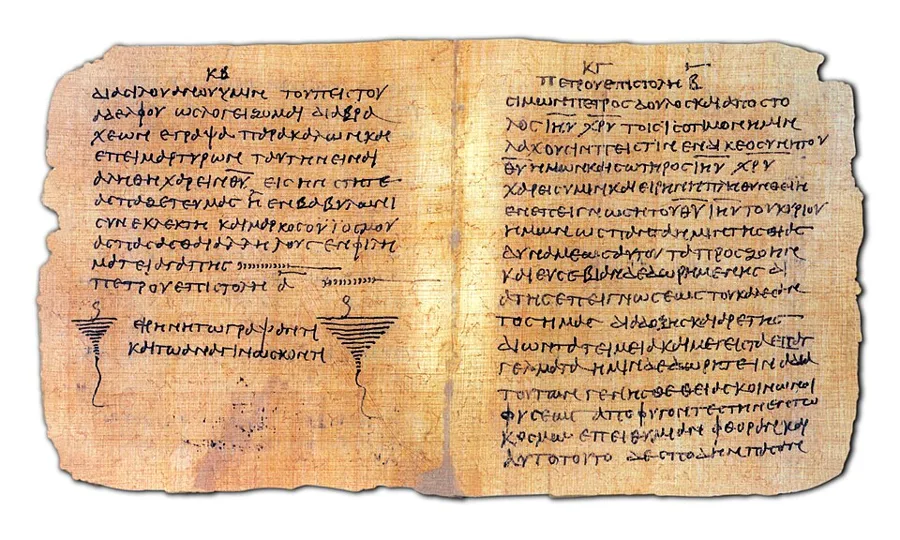 ΚΒ
διασιλουανουυμιν τουπειστου
αδελφου ωσλογειζομαι διαβρα
χεων εγραψα παρακαλωνκαι
επειμαρτυρων ταυτηνειναι
αληθηχαρειν θ̅υ̅ εισηνστητε
ασπαζετευμασ ηενβαβυλωνι
συνεκλεκτη καιμαρκοσουιοσμου
ασπασασθαιαλληλουσ ενφιλη
ματειαγαπησ
πετρουεπιστολη α̅
ειρηνητωγραψαντι
καιτωαναγινωσκοντι
ΚΓ
πετρουεπιστολη β̅
σιμωνπετροσ δουλοσκαιαποστο
λοσ ι̅η̅υ̅ χ̅ρ̅υ̅ τοισισοτιμονημιν
λαχουσινπιστιν ενδικεοσυνητου
θ̅υ̅ ημωνκαισωτηροσ ι̅η̅υ̅ χ̅ρ̅υ̅
χαρεισυμινκαιειρηνηπληθυνθειη
ενεπειγνωσητου θ̅υ̅ ι̅η̅υ̅ τουκυριου
ημων ωσπανταημιντησθειασ
δυναμεωσαυτου ταπροσζωην
καιευσεβιανδεδωρημενησ δι
ατησεπειγνωσεωστουκαλεσαν
τοσημασ διαδοξησκαιαρετησ
διωντατειμειακαιμεγεισταεπαν
γελματα ημινδεδωρητεινα δια
τουτων γενησθεθειασκοινωνοι
φυσεωσ αποφυγοντεστηνεντω
κοσμω επειθυμιαν φθορανκαι
αυτοτουτο δεσπουδηνπασαν